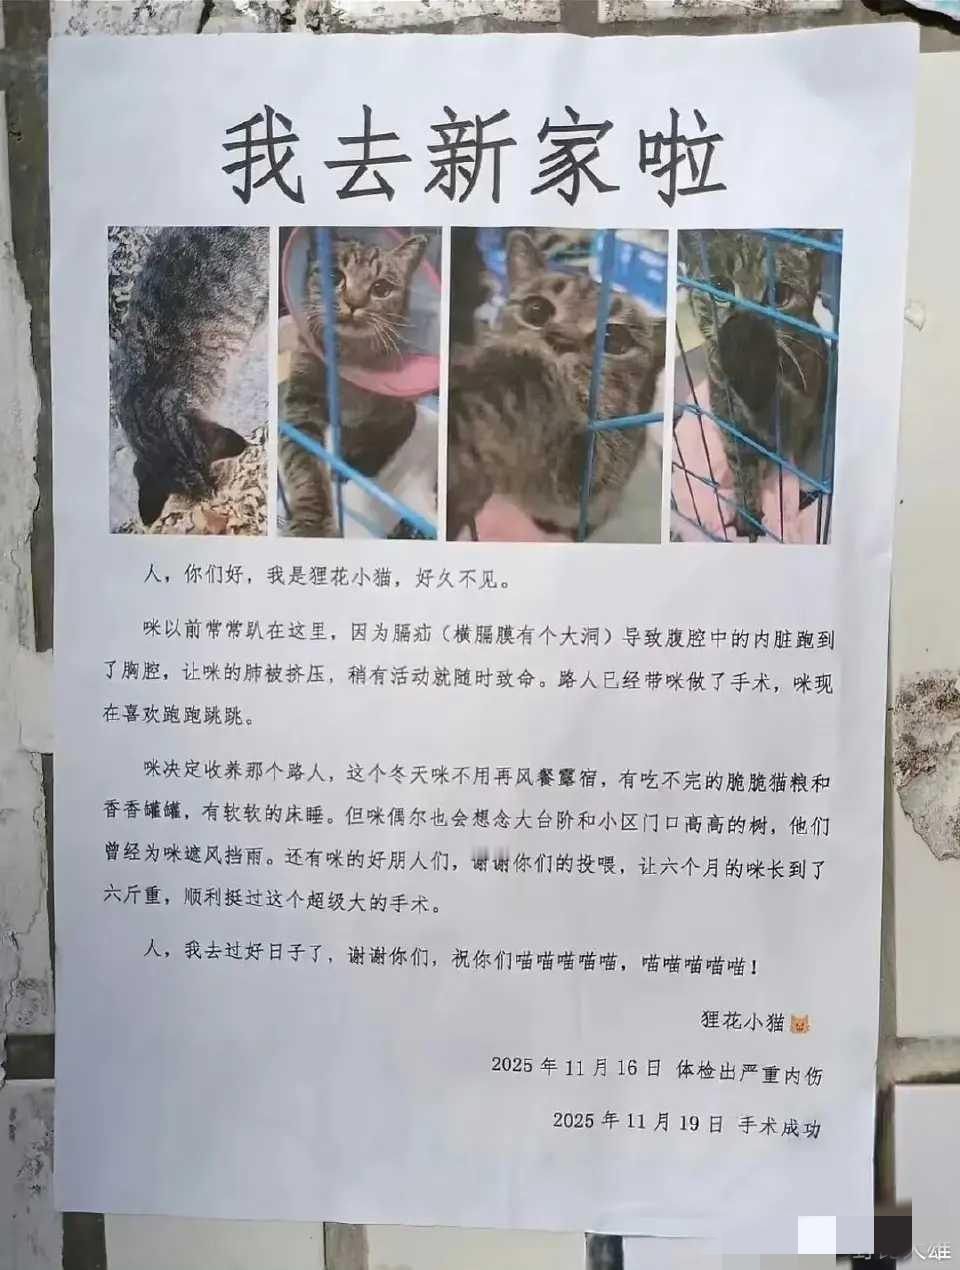 我去新家啦
人，你们好，我是狸花小猫，好久不见。
咪以前常常趴在这里，因为膈疝（横膈膜有个大洞）导致腹腔中的内脏跑到
了胸腔，让咪的肺被挤压，稍有活动就随时致命。路人已经带咪做了手术，咪现
在喜欢跑跑跳跳。
咪决定收养那个路人，这个冬天咪不用再风餐露宿，有吃不完的脆脆猫粮和
香香罐罐，有软软的床睡。但咪偶尔也会想念大台阶和小区门口高高的树，他们
曾经为咪遮风挡雨。还有咪的好朋人们，谢谢你们的投喂，让六个月的咪长到了
六斤重，顺利挺过这个超级大的手术。
人，我去过好日子了，谢谢你们，祝你们喵喵喵喵喵，喵喵喵喵喵！
狸花小猫
2025年11月16日 体检出严重内伤
2025年11月19日 手术成功